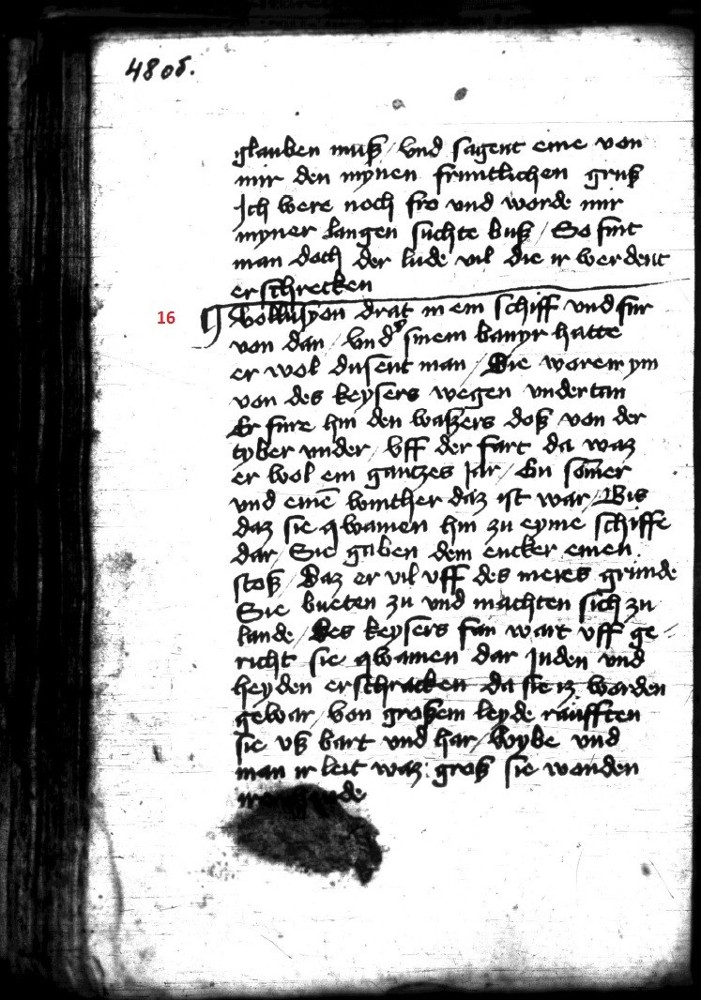 480v.
glauben muß / vnd sagent eme von
mir den mynen fruntlichen gruß
Ich were noch fro vnd worde mir
myner langen suchte buß / So sint
man doch der lude vil die ir werdent
erschrecken
16
Vollusyon drat in ein schiff vnd fur
von dan / vnd sinem banyr hatte
er wol dusent man / Die waren ym
von des keysers wegen vndertan
Er fure hin den waßers doß von der
tyber vnder / vff der fart da waz
er wol ein gantzes Jar / En som̄er
vnd einē winther daz ist war / Bis
daz sie qwamen hin zu eyme schiffe
dar / Sie gaben dem encker einen
stoß / Daz er vil vff des meres grunde
Sie bueten zu vnd machten sich zu
lande / Des keysers fan wart vff ge
richt / sie qwamen dar Juden vnd
heyden erschracken da sie iz worden
gewar / von großem leyde raufften
sie vß bart vnd har / Wybe vnd
man ir leit waz groß sie wonden
de